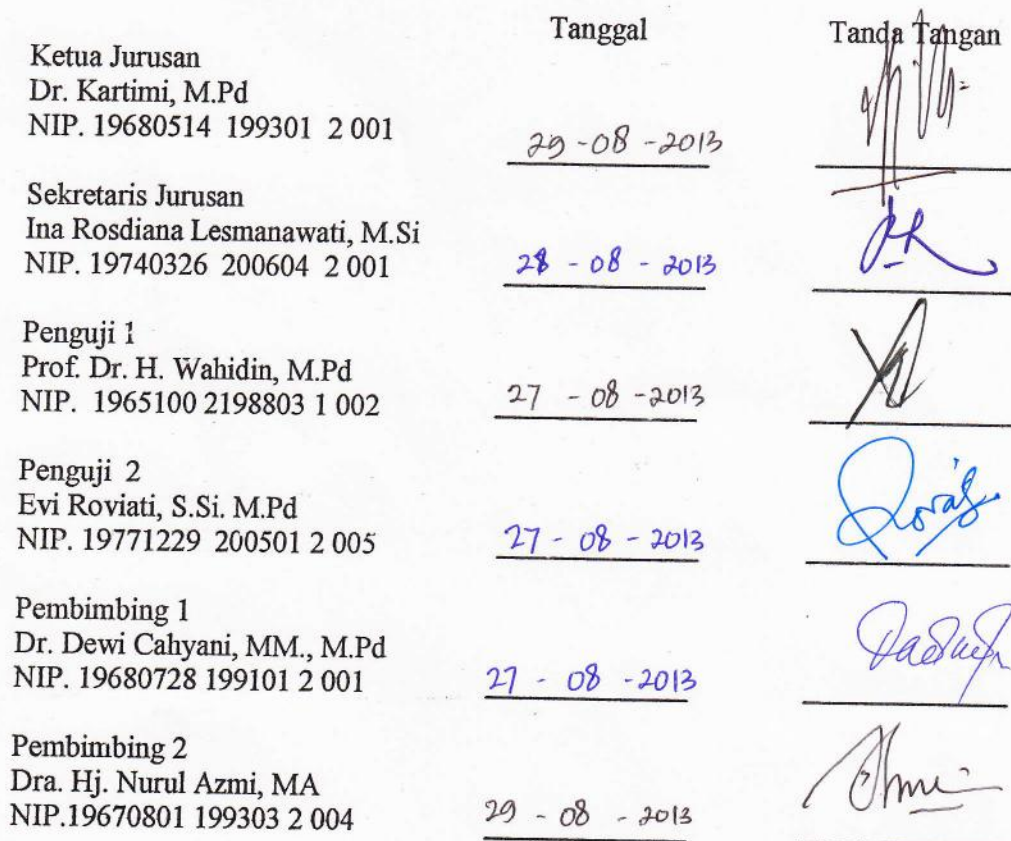 Tanggal Tanda Tangan
Ketua Jurusan
Dr. Kartimi, M.Pd
NIP. 19680514 199301 2 001
29-08-2013
Sekretaris Jurusan
Ina Rosdiana Lesmanawati, M.Si
NIP. 19740326 200604 2 001
28 - 08 - 2013
Penguji 1
Prof. Dr. H. Wahidin, M.Pd
NIP. 1965100 2198803 1 002
27 - 08 - 2013
Penguji 2
Evi Roviati, S.Si. M.Pd
NIP. 19771229 200501 2 005
27 - 08 - 2013
Pembimbing 1
Dr. Dewi Cahyani, MM., M.Pd
NIP. 19680728 199101 2 001
27 - 08 - 2013
Pembimbing 2
Dra. Hj. Nurul Azmi, MA
NIP.19670801 199303 2 004
29 - 08 - 2013